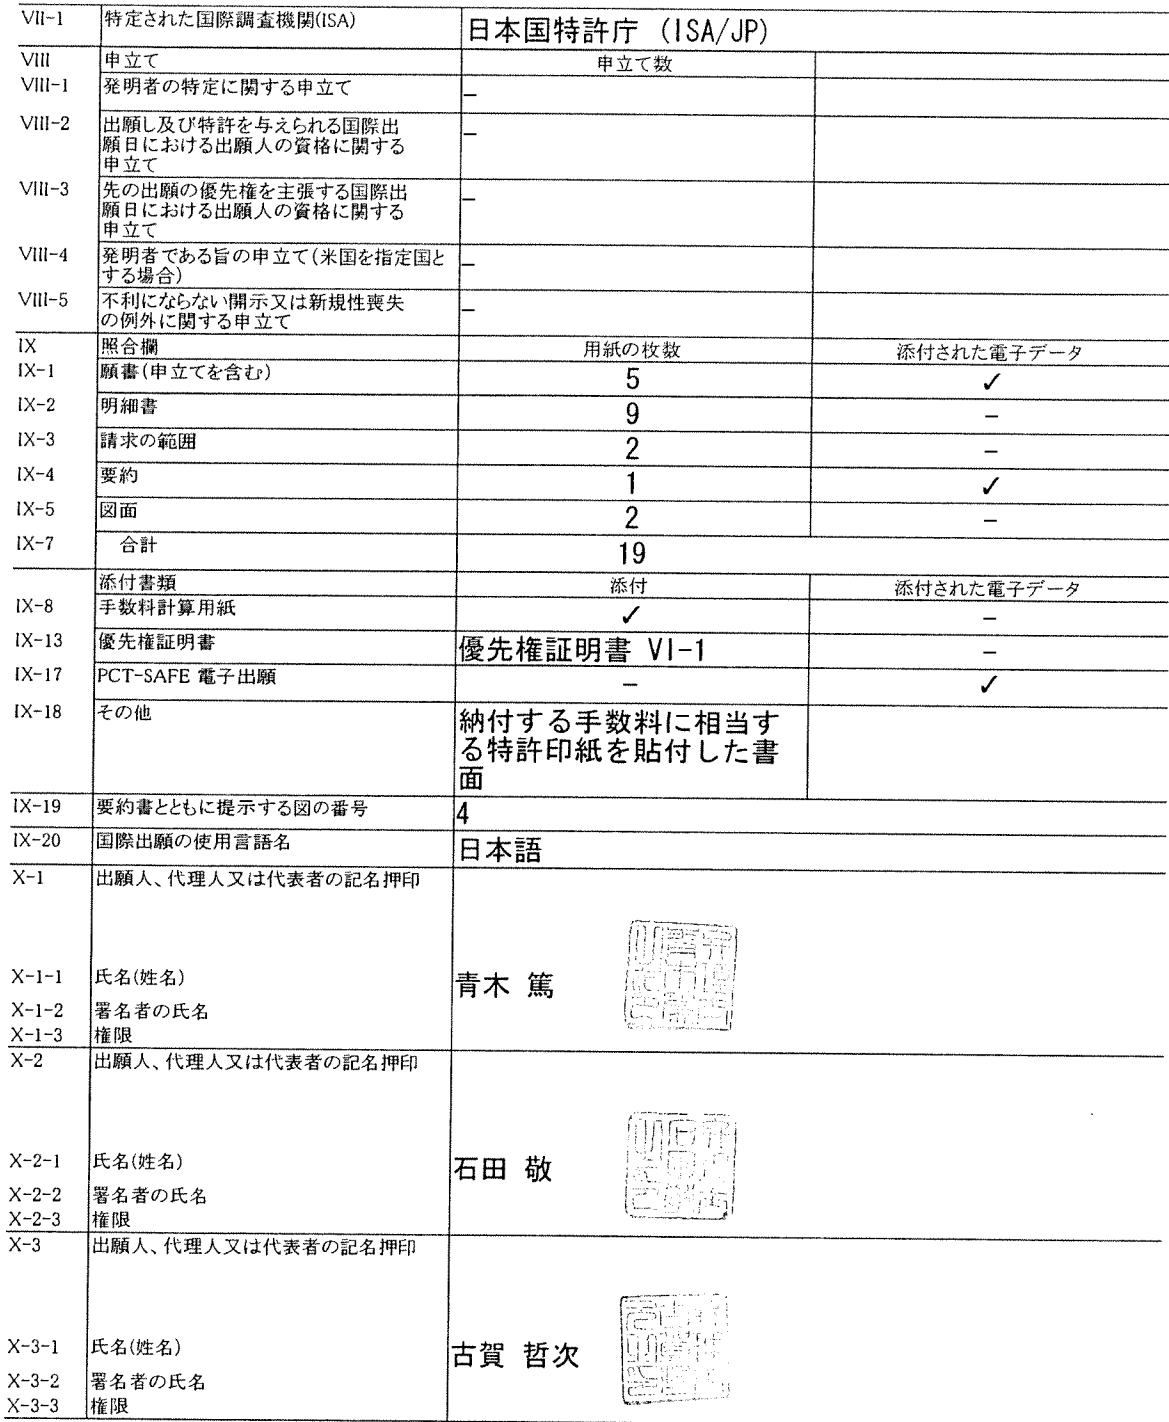 VII-1 特定された国際調査機関(ISA) 日本国特許庁 (ISA/JP)
VIII 申立て 申立て数
VIII-1 発明者の特定に関する申立て –
VIII-2 出願し及び特許を与えられる国際出 –
願日における出願人の資格に関する
申立て
VIII-3 先の出願の優先権を主張する国際出 –
願日における出願人の資格に関する
申立て
VIII-4 発明者である旨の申立て(米国を指定国と –
する場合)
VIII-5 不利にならない開示又は新規性喪失 –
の例外に関する申立て
IX 照合欄 用紙の枚数 添付された電子データ
IX-1 願書(申立てを含む) 5 ✓
IX-2 明細書 9 –
IX-3 請求の範囲 2 –
IX-4 要約 1 ✓
IX-5 図面 2 –
IX-7 合計 19
添付書類 添付 添付された電子データ
IX-8 手数料計算用紙 ✓ –
IX-13 優先権証明書 優先権証明書 VI-1 –
IX-17 PCT-SAFE 電子出願 – ✓
IX-18 その他 納付する手数料に相当す
る特許印紙を貼付した書
面
IX-19 要約書とともに提示する図の番号 4
IX-20 国際出願の使用言語名 日本語
X-1 出願人、代理人又は代表者の記名押印
X-1-1 氏名(姓名) 青木 篤
X-1-2 署名者の氏名
X-1-3 権限
X-2 出願人、代理人又は代表者の記名押印
X-2-1 氏名(姓名) 石田 敬
X-2-2 署名者の氏名
X-2-3 権限
X-3 出願人、代理人又は代表者の記名押印
X-3-1 氏名(姓名) 古賀 哲次
X-3-2 署名者の氏名
X-3-3 権限